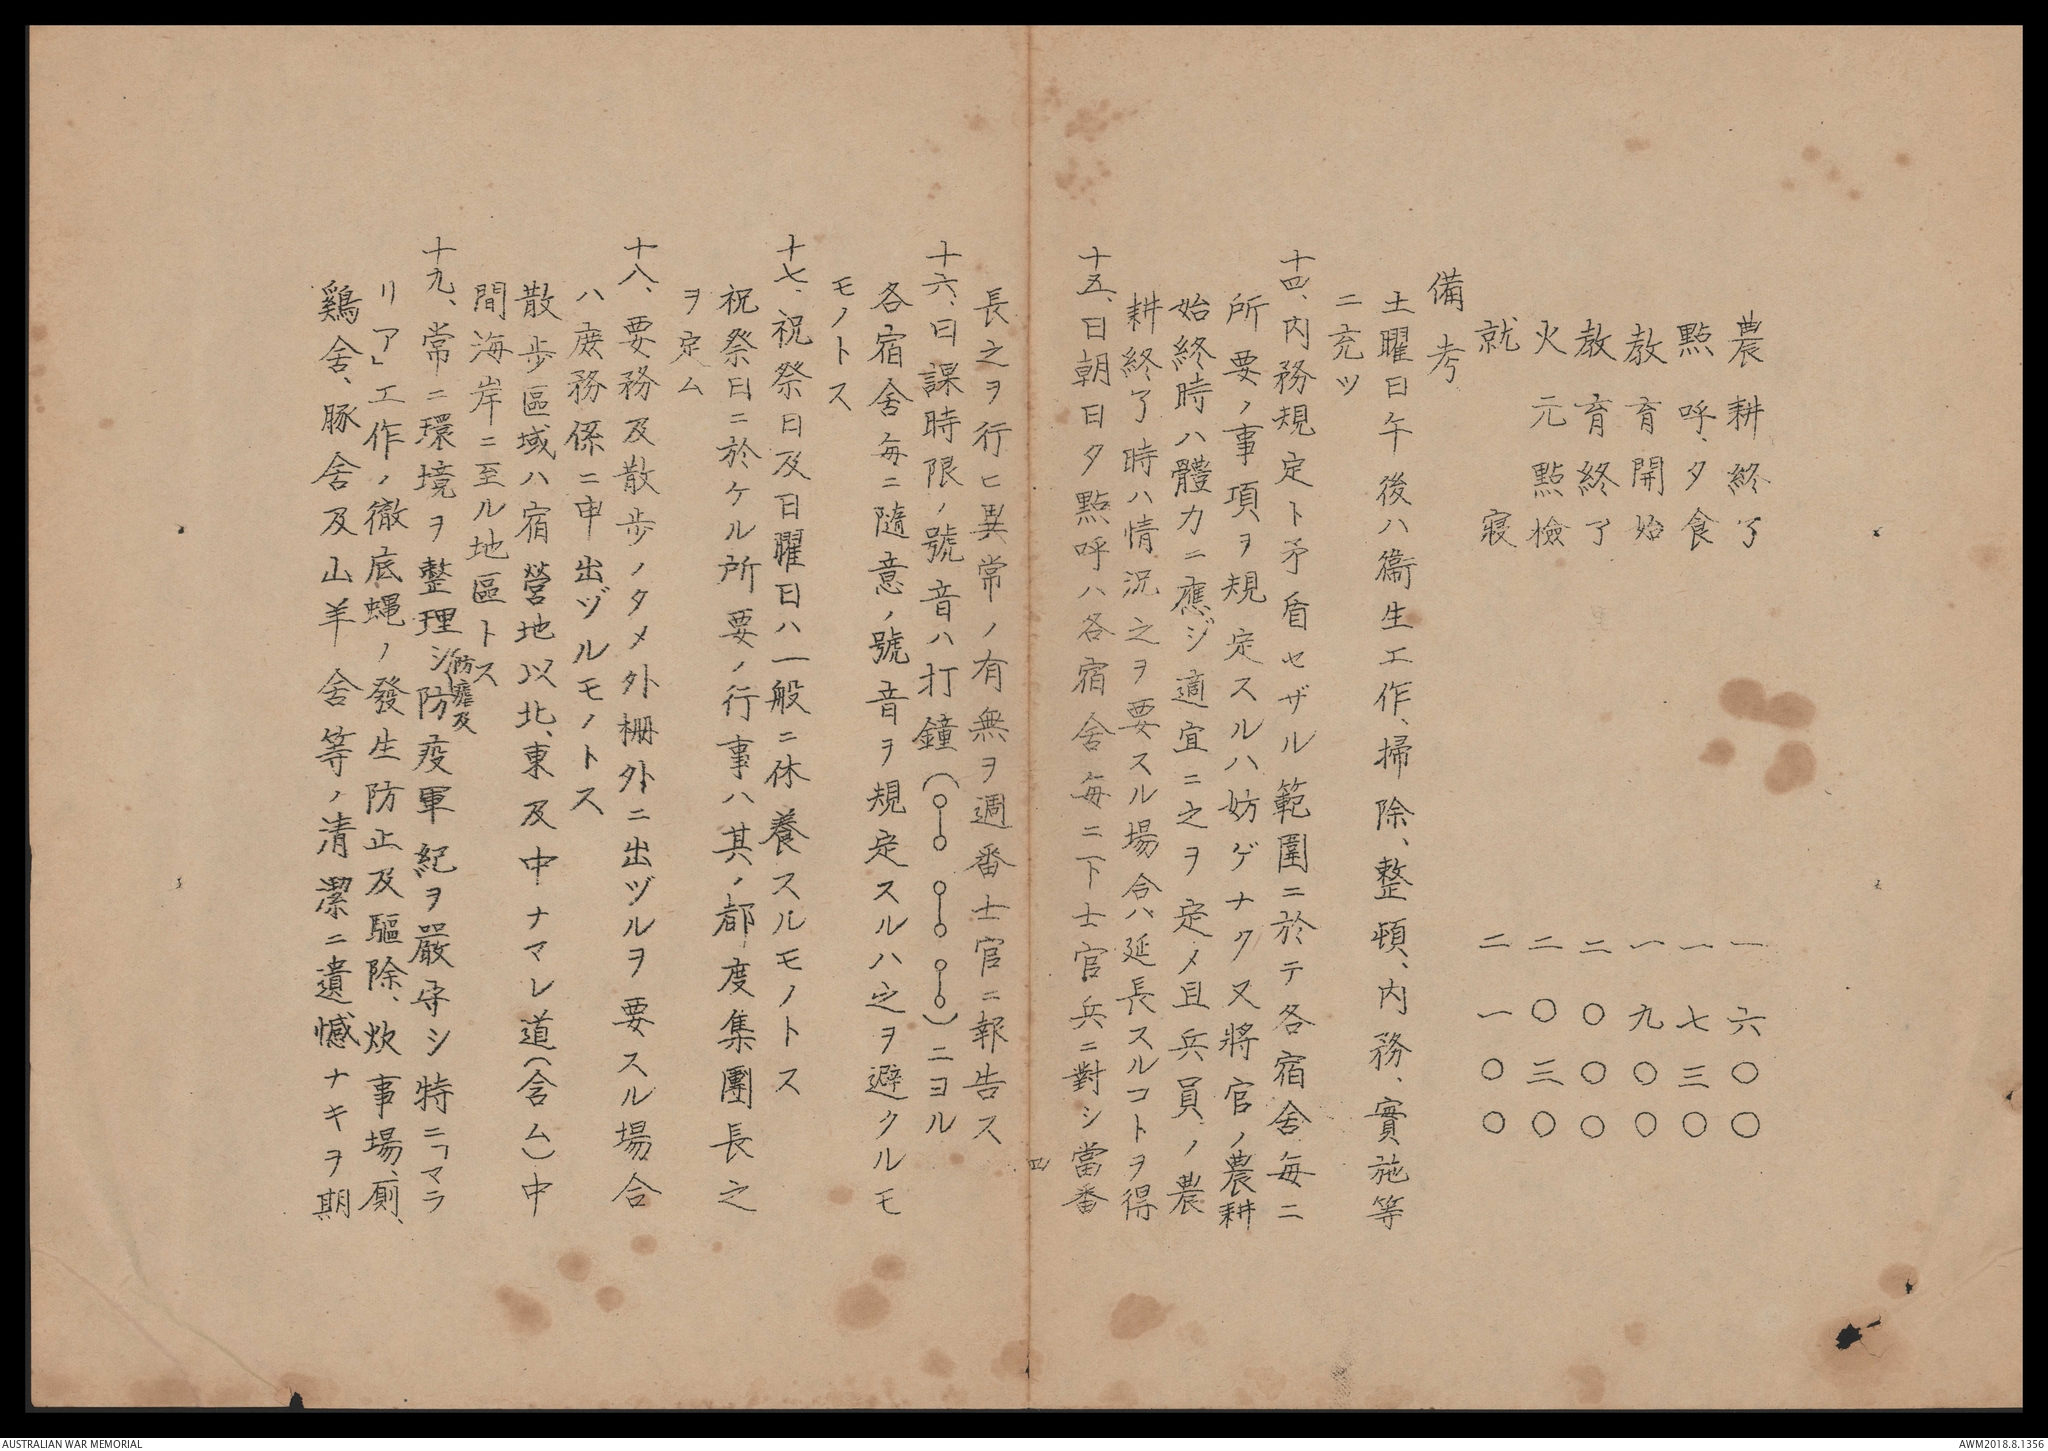 農耕終了 一六〇〇
點呼、夕食 一七三〇
教育開始 一九〇〇
教育終了 二〇〇〇
火元點檢 二〇三〇
就寢 二一〇〇
備考
土曜日午後ハ衞生工作、掃除、整頓、内務、實施等
ニ充ツ
十四、内務規定ト矛盾セザル範圍ニ於テ各宿舍毎ニ
所要ノ事項ヲ規定スルハ妨ゲナク又將官ノ農耕
始終時ハ體力ニ應ジ適宜ニ之ヲ定メ且兵員ノ農
耕終了時ハ情況之ヲ要スル場合ハ延長スルコトヲ得
十五、日朝日夕點呼ハ各宿舍毎ニ下士官兵ニ對シ當番
四
長之ヲ行ヒ異常ノ有無ヲ週番士官ニ報告ス
十六、日課時限ノ號音ハ打鐘(○-○ ○-○ ○-○)ニヨル
各宿舍毎ニ隨意ノ號音ヲ規定スルハ之ヲ避クルモ
モノトス
十七、祝祭日及日曜日ハ一般ニ休養スルモノトス
祝祭日ニ於ケル所要ノ行事ハ其ノ都度集團長之
ヲ定ム
十八、要務及散歩ノタメ外柵外ニ出ヅルヲ要スル場合
ハ庶務係ニ申出ヅルモノトス
散歩區域ハ宿營地以北、東及中ナマレ道(含ム)中
間海岸ニ至ル地區トス
十九、常ニ環境ヲ整理シ防瘧及防疫軍紀ヲ嚴守シ特ニ「マラ
リア」工作ノ徹底蝿ノ發生防止及驅除、炊事場、厠、
鷄舍、豚舍及山羊舍等ノ清潔ニ遺憾ナキヲ期
AUSTRALIAN WAR MEMORIAL
AWM2018.8.1356